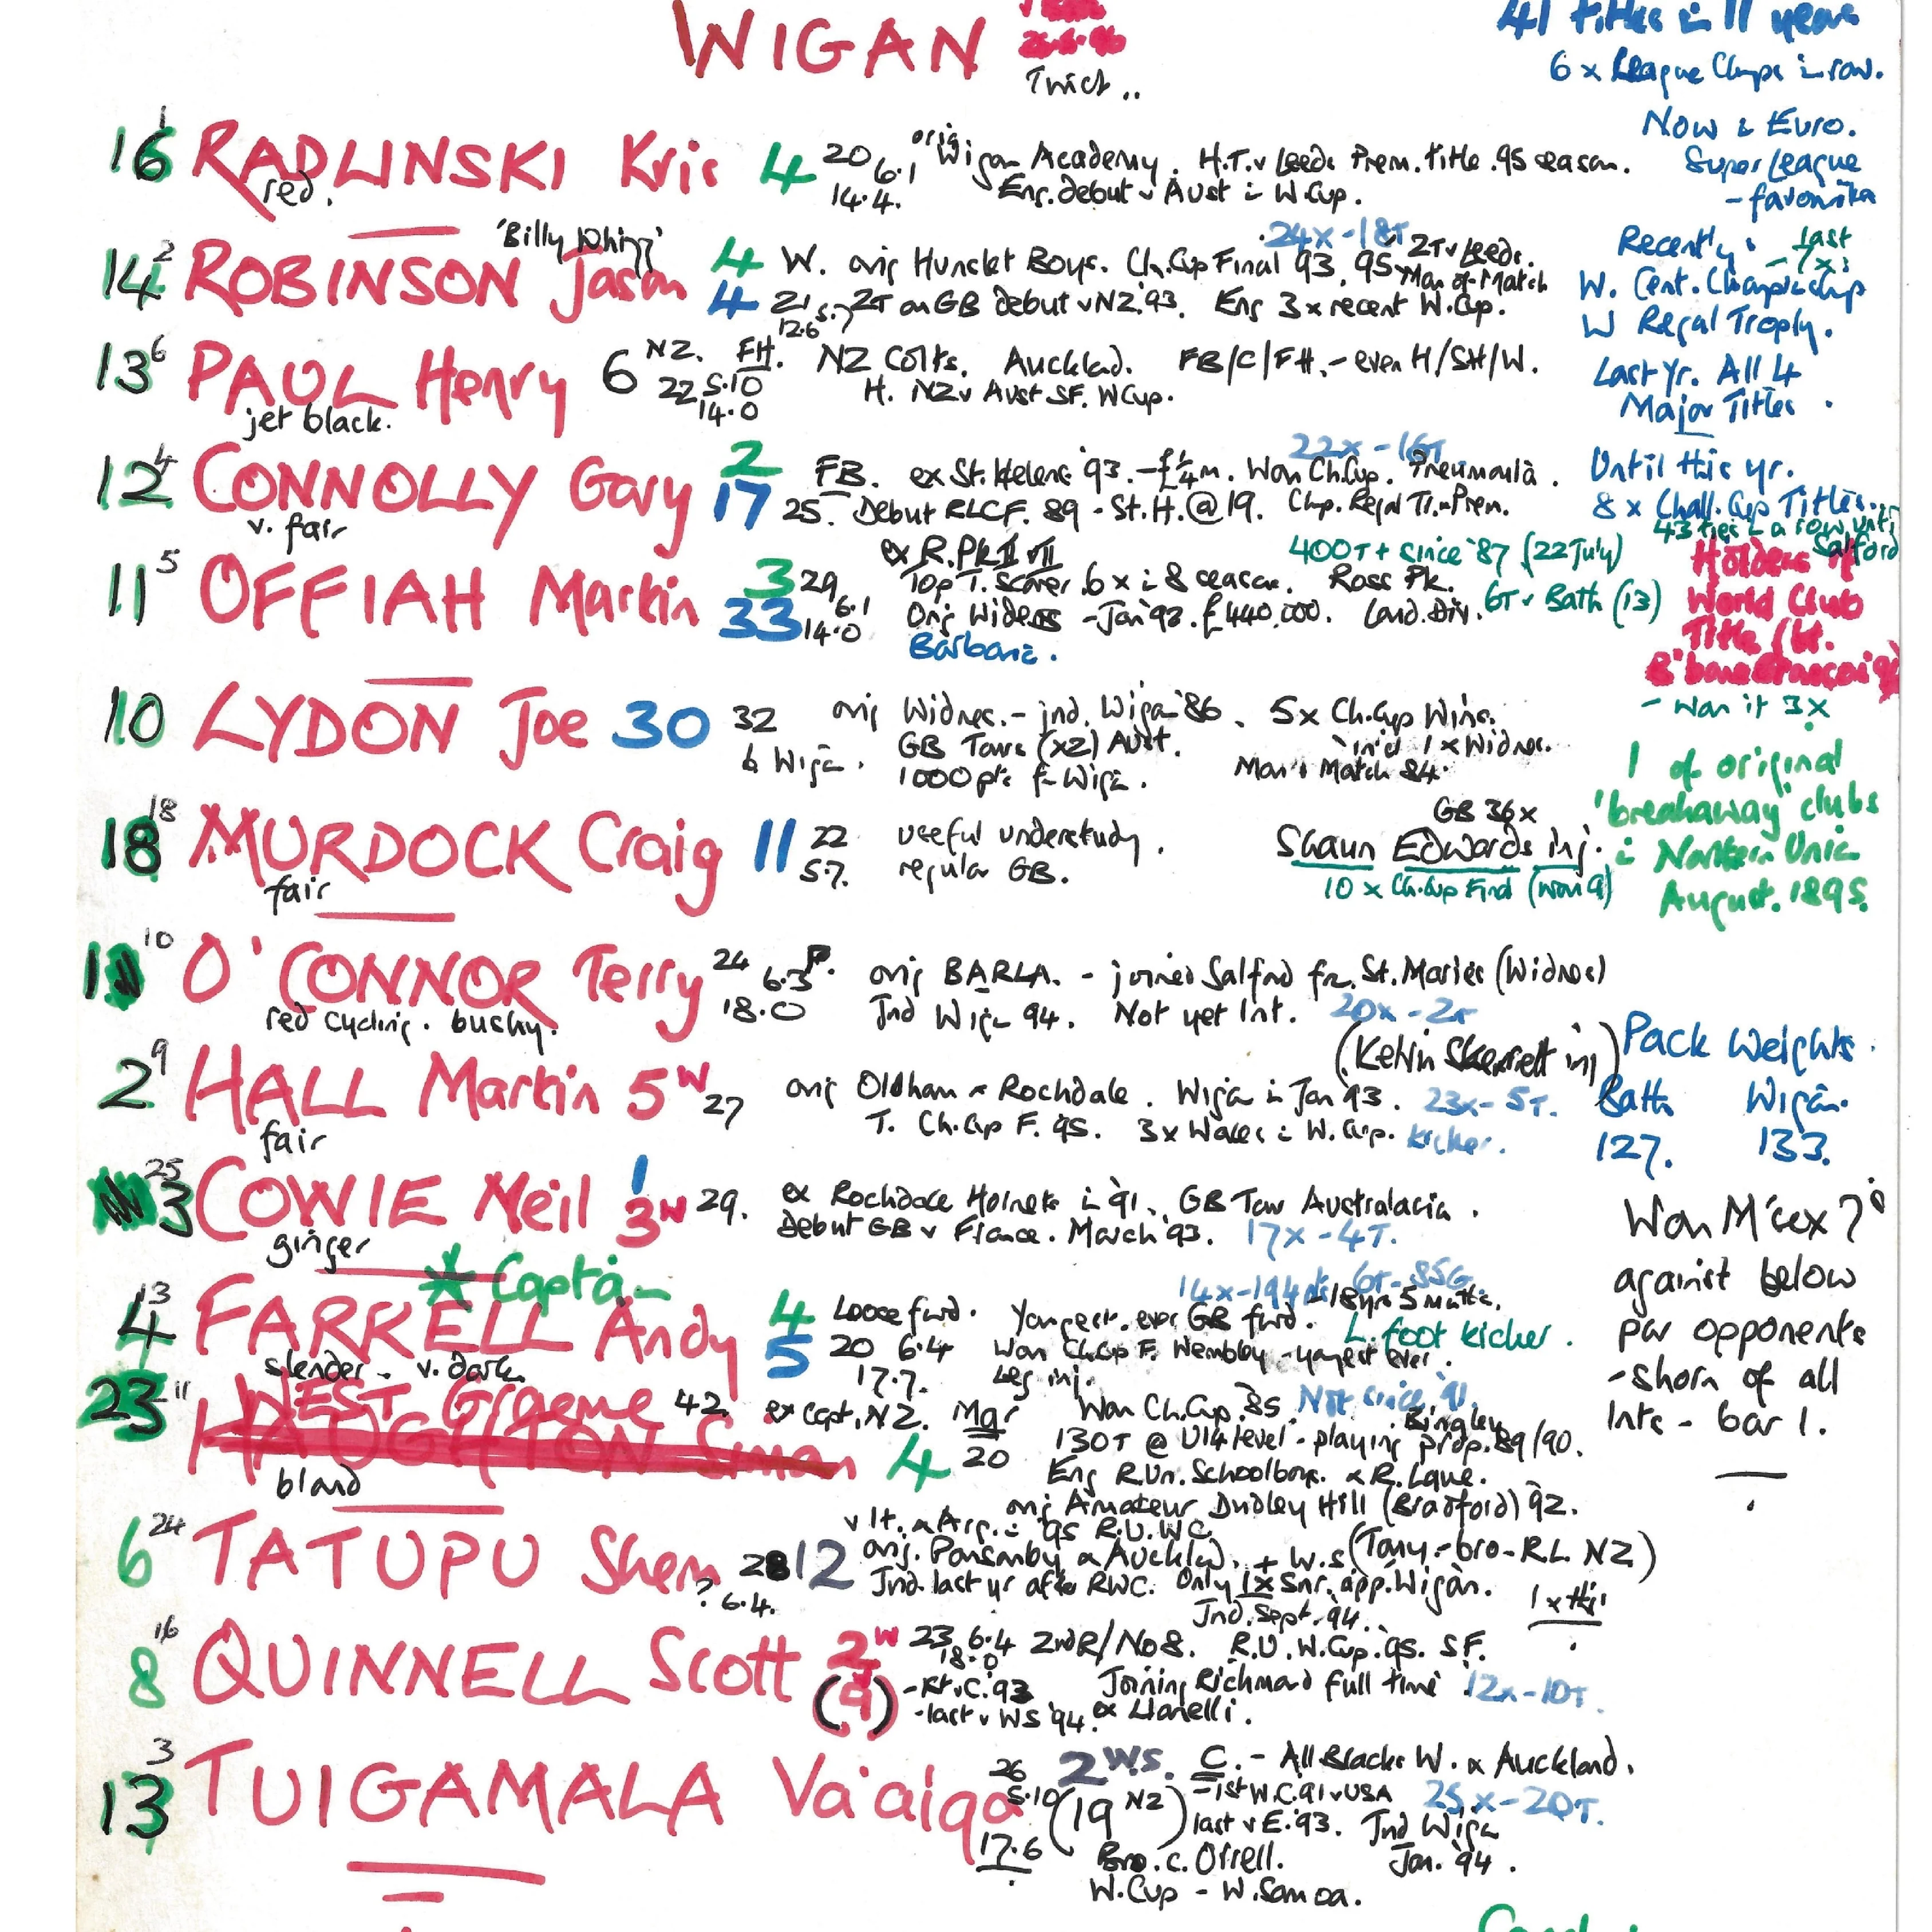 WIGAN
Twick..
41 titles in 11 years
6 x League Chmps in row.
Now in Euro.
Super League
- favourites
16 1 RADLINSKI Kris 4 20 6.1
14.4.
red.
orig Wigan Academy. H.T. v Leeds Prem. title. 95 season.
Eng. debut v Aust in W.Cup.
Recently: last
W. Cent. Championship
W Regal Trophy.
Last yr. All 4
Major Titles.
14 2 ROBINSON Jason 4 4
'Billy Whizz'
24x - 18T
W. orig Hunslet Boys. Ch.Cup Final 93, 95 2T v Leeds.
Man-of-Match
21 5.7 2T on GB debut v NZ '93. Eng 3 x recent W.Cup.
12.6
13 6 PAUL Henry 6
jet black.
NZ. FH. NZ Colts. Auckland. FB/C/FH. - even H/SH/W.
22 5.10 H. NZ v Aust SF. W Cup.
14.0
Until this yr.
8 x Chall. Cup Titles..
43 ties in a row until
Salford
12 4 CONNOLLY Gary 2 17
v. fair
22x - 16T
FB. ex St. Helens '93. - £¼m. Won Ch.Cup. Pneumonia.
25. Debut RLCF. 89 - St.H. @ 19. Chp. Regal Tr. Prem.
Holders of
World Club
Title (bt.
- won it 3x
11 5 OFFIAH Martin 3 33
29 6.1
14.0
ex R. Pk
400T + since '87 (22 July)
Top T. Scorer. 6 x in 8 seasons. Ross Pk.
Orig Widnes - Jan '92. £440,000. Lond. Div. 6T v Bath (13)
Barbarian.
10 LYDON Joe 30 32
b Wigan.
orig Widnes. - jnd. Wigan '86. 5x Ch.Cup Wins.
GB Tours (x2) Aust. incl 1 x Widnes.
1000 pts for Wigan. Man o Match 84.
1 of original
'breakaway' clubs
in Northern Union
August. 1895.
18 18 MURDOCK Craig 11 22
5.7.
fair
useful understudy.
regular GB.
GB 36x
Shaun Edwards inj.
10 x Ch.Cup Final (won 9)
10 O'CONNOR Terry 24 6.3 P.
18.0
red cycling. bushy.
orig BARLA. - joined Salford fr. St. Maries (Widnes)
Jnd Wigan 94. Not yet Int. 20x - 2T
(Kelvin Skerrett inj)
Pack Weights.
Bath Wigan.
127. 133.
2 9 HALL Martin 5 W 27
fair
orig Oldham & Rochdale. Wigan in Jan 93. 23x - 5T.
T. Ch.Cup F. 95. 3x Wales in W.Cup. kicker.
3 25 COWIE Neil 1 3 W 29.
ginger
ex Rochdale Hornets in '91. GB Tour Australasia.
Debut GB v France. March 93. 17x - 4T.
Won M'sex 7s
against below
par opponents
- shorn of all
Ints - bar 1.
* Captain
4 13 FARRELL Andy 4 5
slender - v. dark
14x - 194 pts 6T - 85G
Loose fwd. Youngest. ever GB fwd. - 18 yrs 5 mths.
20 6.4 Won Ch.Cup F. Wembley - youngest ever. L. foot kicker.
17.7. Leg inj.
23 11 WEST Graeme 42. ex capt. NZ. Mgr Won Ch.Cup. 85. Not since '91.
HAUGHTON Simon 4 20
bland
130T @ U14 level - playing prop. 89/90. Bingley
Eng R.Un. Schoolboys. & R. Lgue.
orig Amateur Dudley Hill (Bradford) 92.
6 24 TATUPU Shem 28 12
? 6.4.
v It. & Arg. in '95 R.U. WC
orig. Ponsonby & Auckland. + W.S (Tony - bro - R.L. NZ)
Jnd. last yr after RWC. Only 1x Snr. app. Wigan.
8 16 QUINNELL Scott 2 W (9)
Jnd. Sept. 94.
23 6.4 2nd R/No 8. R.U. W.Cup. 95. SF.
18.0
Joining Richmond full time. 12x - 10T.
- last v WS '94. ex Llanelli.
13 3 TUIGAMALA Va'aiga
26
5.10
17.6
2 W.S. C. - All Blacks W. & Auckland.
(19 NZ) - 1st W.C. 91 v USA 25x - 20T.
last v E. '93. Jnd Wigan
Jan. '94.
Bro. c. Orrell.
W.Cup - W. Samoa.